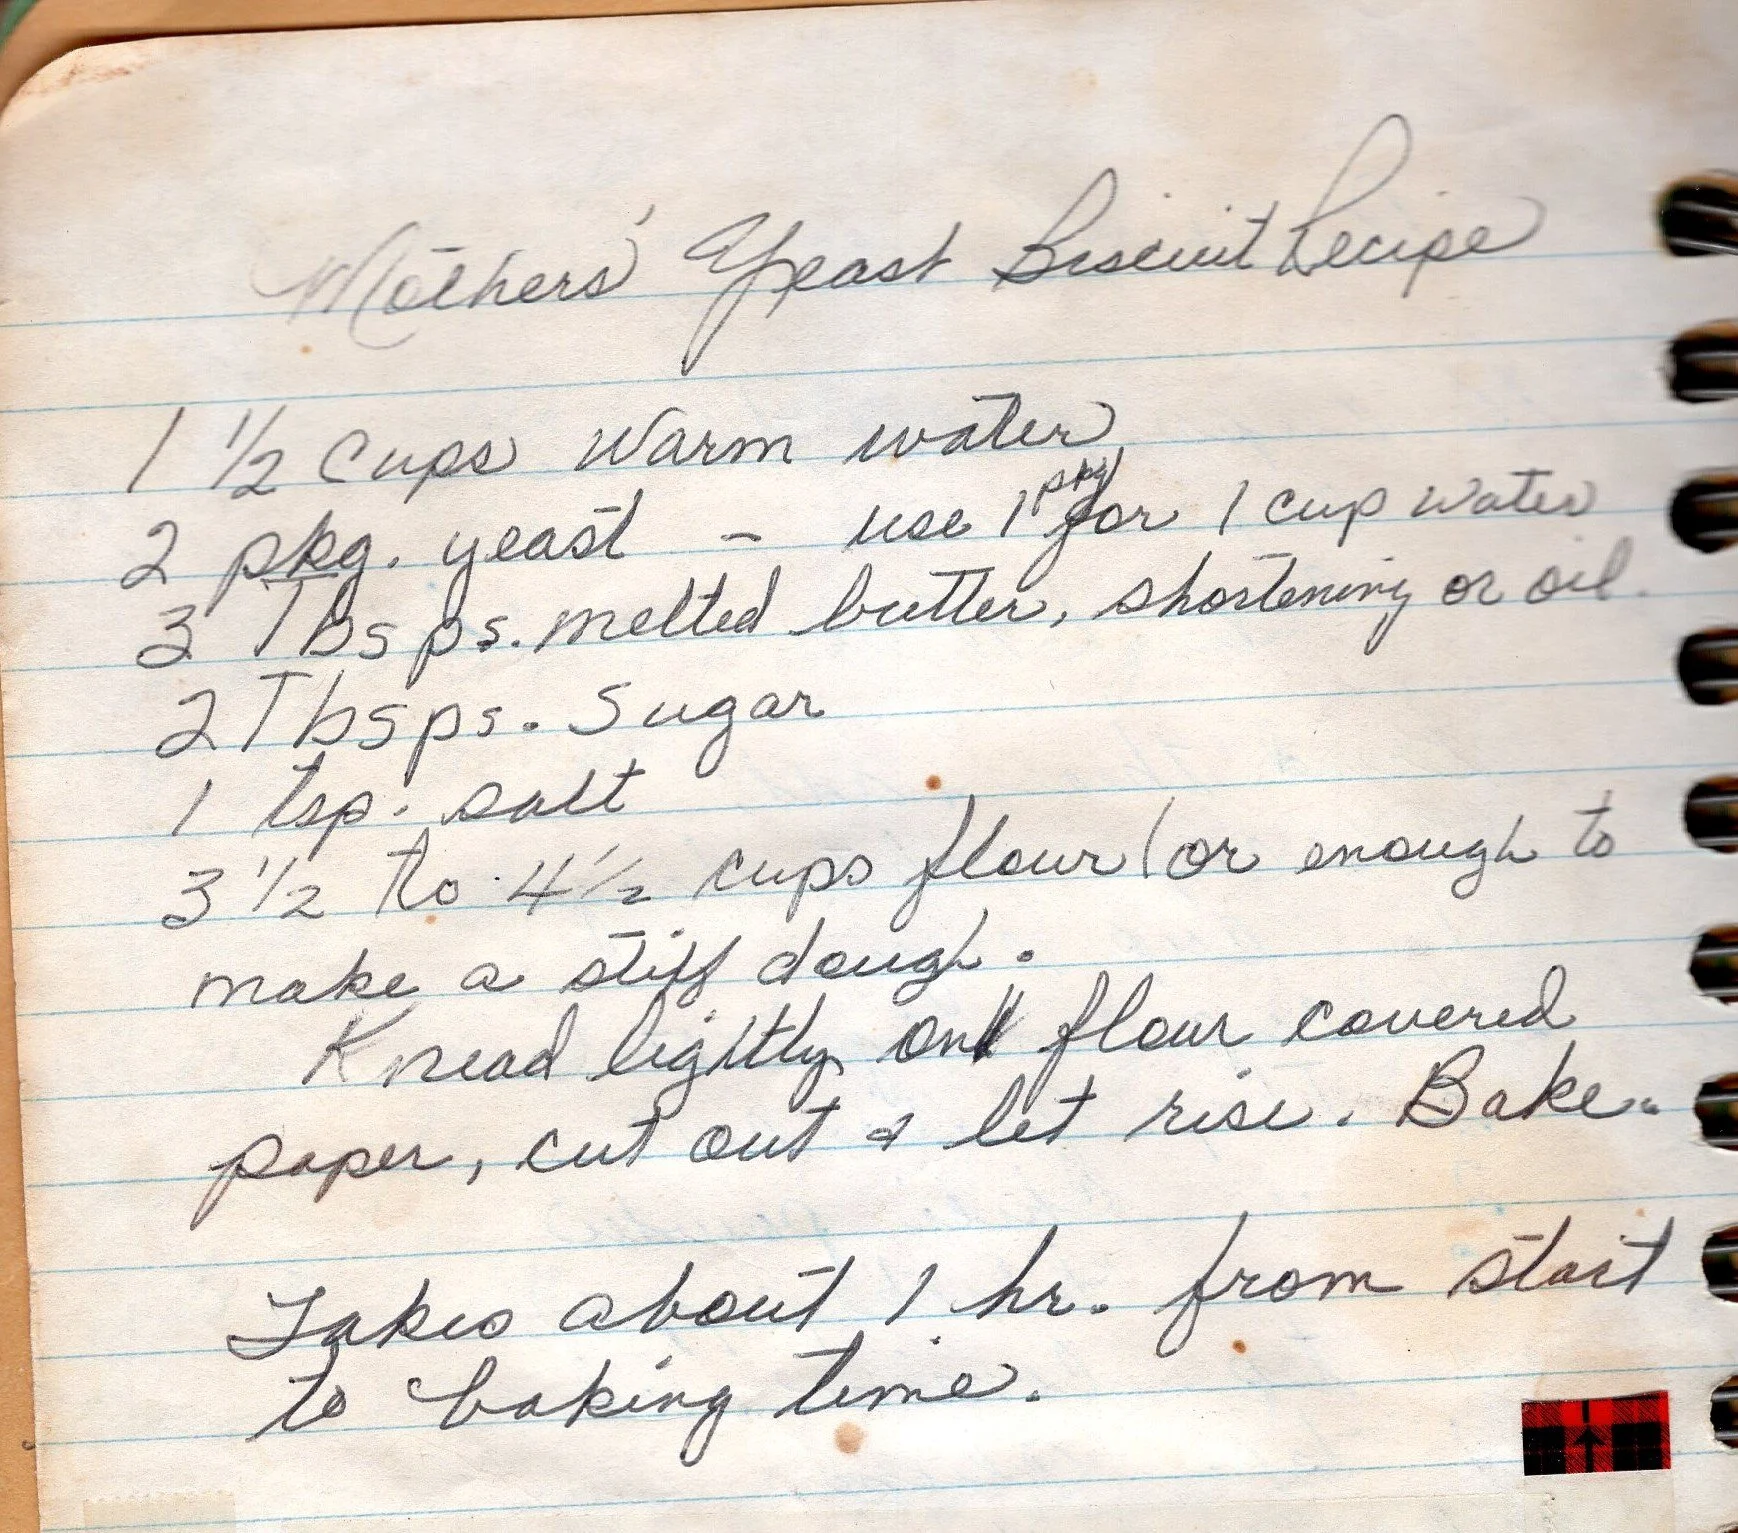 Mothers' Yeast Biscuit Recipe
1 1/2 Cups Warm water
2 pkg. yeast - use 1 pkg for 1 cup water
3 Tbsps. melted butter, shortening or oil.
2 Tbsps. Sugar
1 tsp. salt
3 1/2 to 4 1/2 cups flour (or enough to
make a stiff dough.
Knead lightly on flour covered
paper, cut out & let rise. Bake.
Takes about 1 hr. from start
to baking time.